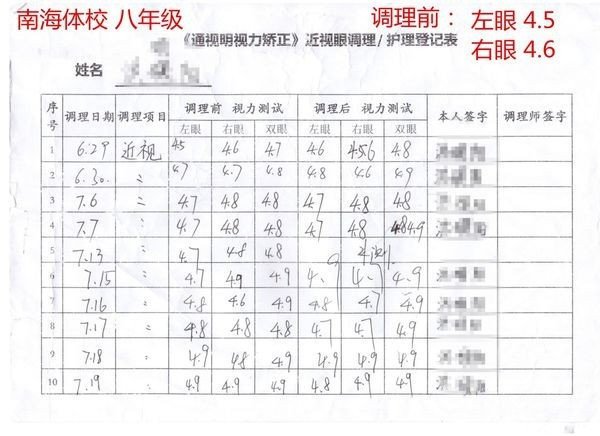 南海体校 八年级
调理前： 左眼 4.5
右眼 4.6
《通视明视力矫正》近视眼调理/护理登记表
姓名
序号 调理日期 调理项目 调理前 视力测试 调理后 视力测试 本人签字 调理师签字
左眼 右眼 双眼 左眼 右眼 双眼
1 6.29 近视 4.5 4.6 4.7 4.6 4.8
2 6.30. 〃 4.7 4.7 4.8 4.8 4.6 4.9
3 7.6 〃 4.7 4.8 4.8 4.7 4.8 4.8
4 7.7 〃 4.7 4.8 4.8 4.7 4.8 4.84.9
5 7.13 〃 4.7 4.8 4.8
6 7.15 〃 4.7 4.9 4.9 4.9
7 7.16 〃 4.8 4.6 4.9 4.8 4.7 4.9
8 7.17 〃 4.8 4.8 4.8 4.7 4.7 4.9
9 7.18 〃 4.9 4.8 4.9 4.9 4.9 4.9
10 7.19 〃 4.9 4.9 4.9 4.8 4.9 4.9